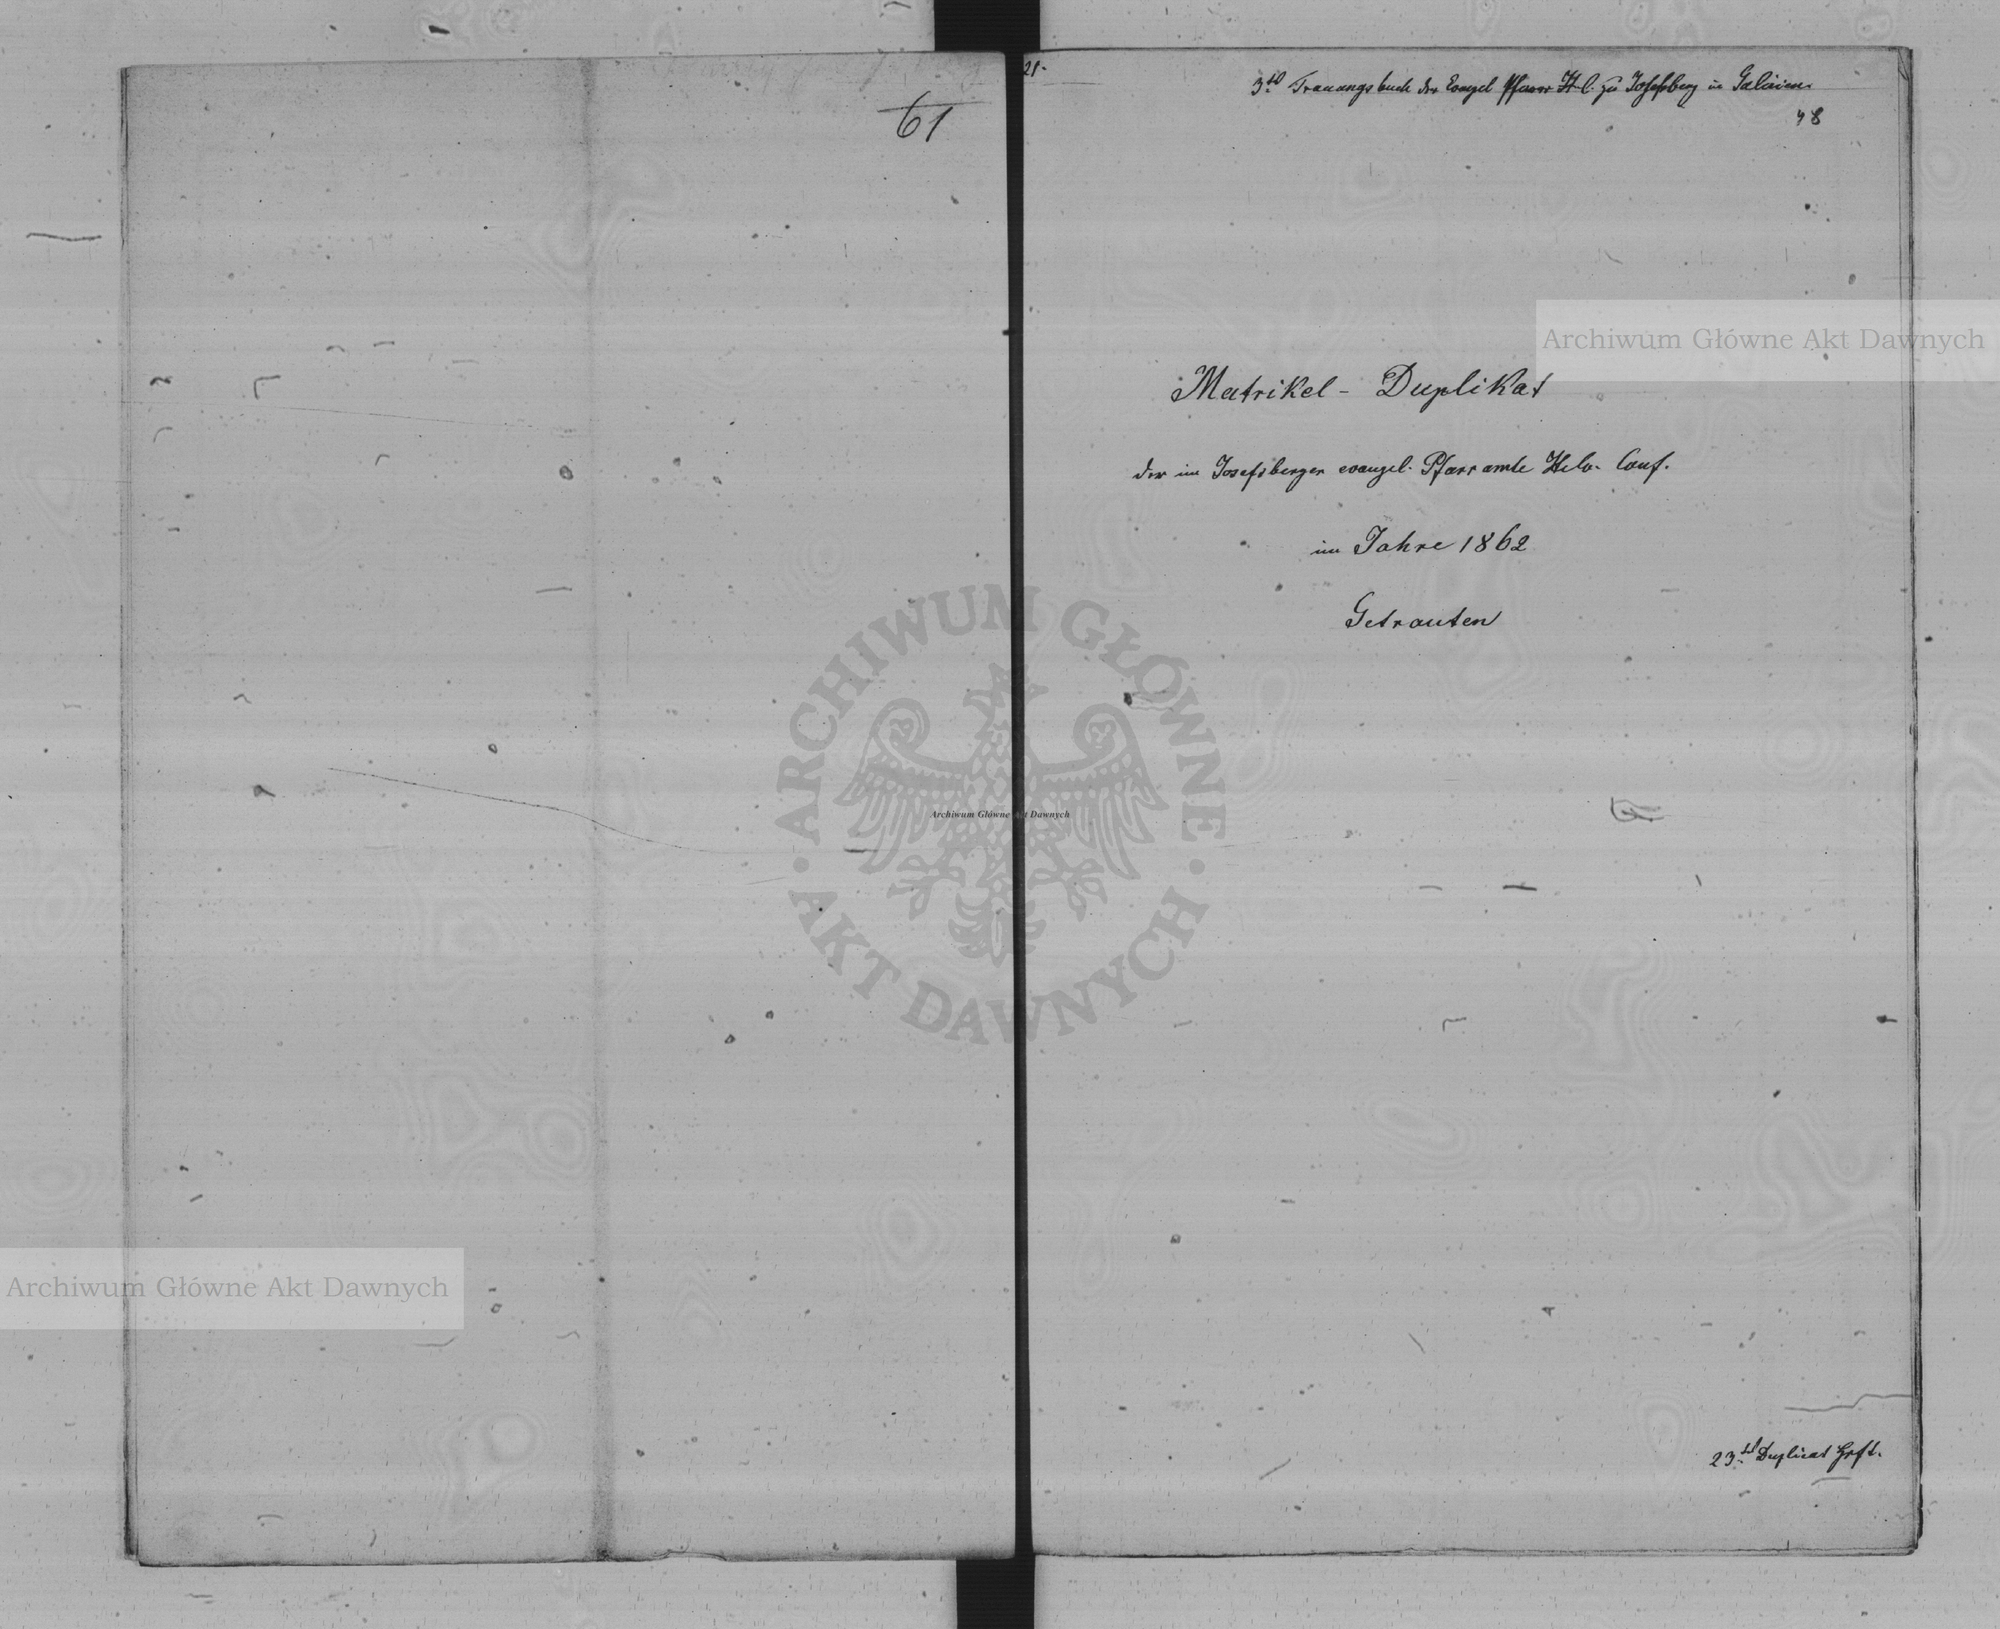 61
21.
3td Trauungsbuch der Evangel Pfarre H. C. zu Josefsberg in Galizien.
48
Archiwum Główne Akt Dawnych
Matrikel - Duplikat
der im Josefsberger evangel. Pfarramte Helv. Conf.
im Jahre 1862
Getrauten
ARCHIWUM GŁÓWNE AKT DAWNYCH
Archiwum Główne Akt Dawnych
Archiwum Główne Akt Dawnych
23td Duplicat Heft.